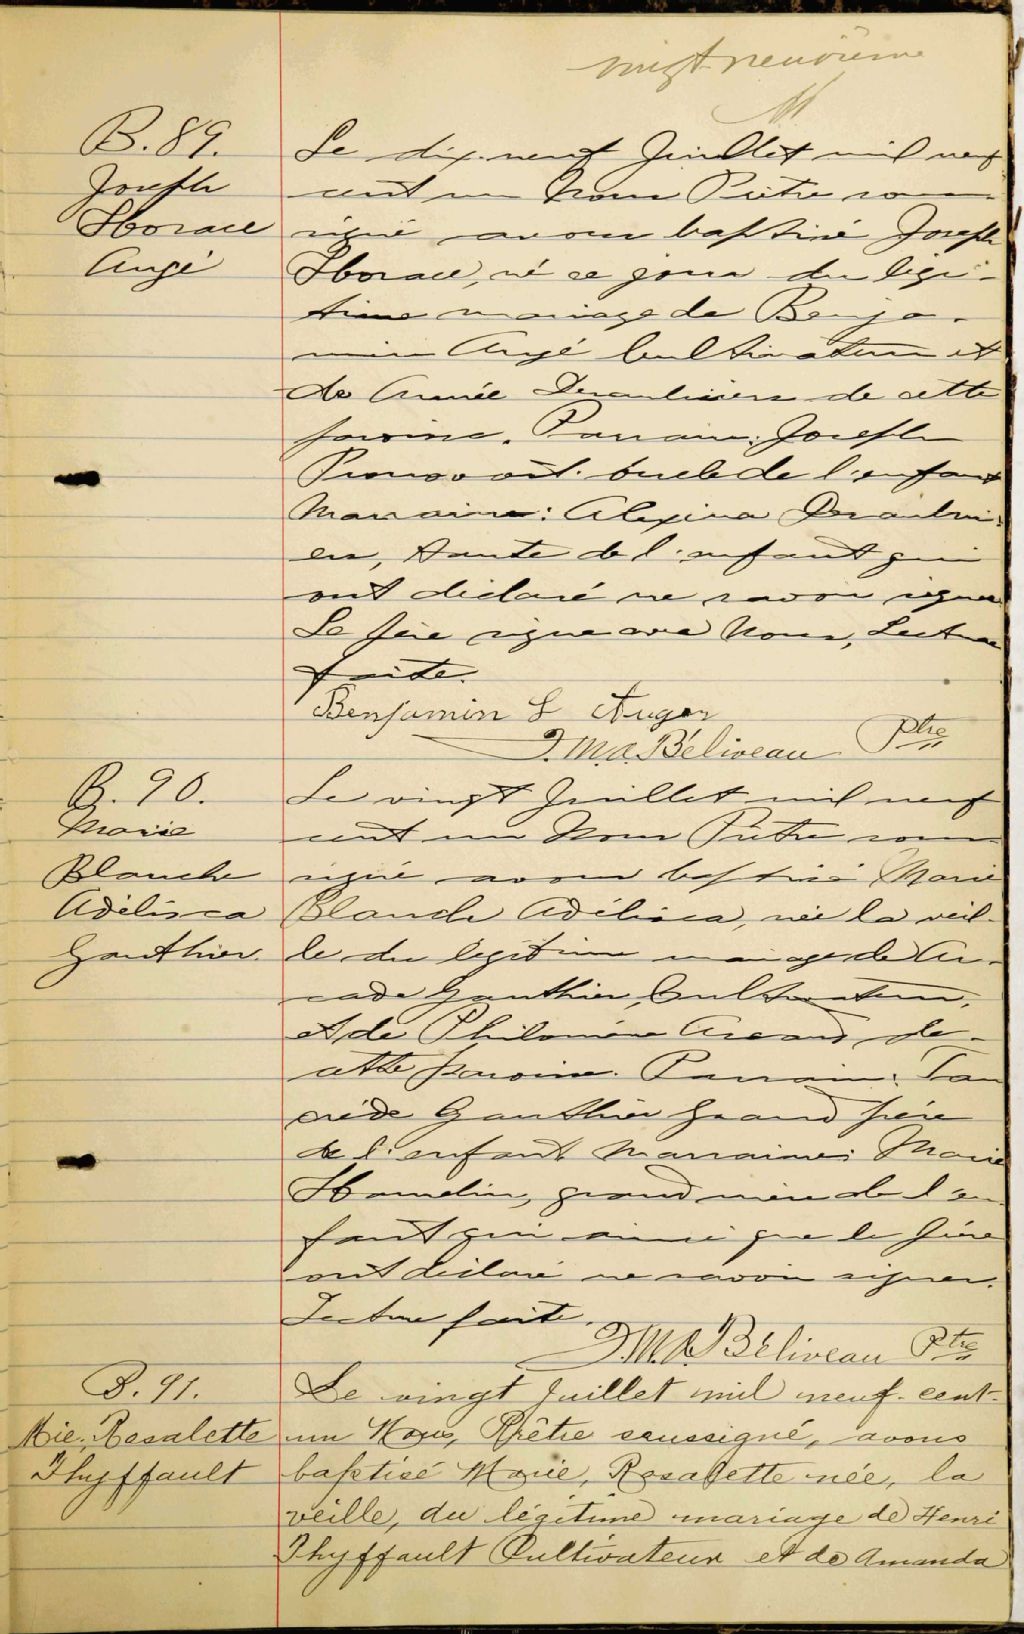 vingt neuvième
B. 89.
Joseph
Horace
Augé
Le dix-neuf Juillet mil neuf
cent un Nous Prêtre sous-
signé avons baptisé Joseph
Horace, né ce jour du légi-
time mariage de Benja-
min Augé Cultivateur et
de Aimée Desaulniers de cette
paroisse. Parrain: Joseph
Pronovost. oncle de l'enfant
Marraine: Alexina Desaulni-
ers, tante de l'enfant qui
ont déclaré ne savoir signer
Le père signe avec Nous, Lecture
faite.
Benjamin L Auger
J.M.A. Béliveau Ptre
B. 90.
Marie
Blanche
Adélisca
Gauthier.
Le vingt Juillet mil neuf
cent un Nous Prêtre sous-
signé avons baptisé Marie
Blanche Adélisca, née la veil-
le du légitime mariage de Ar-
cade Gauthier, Cultivateur,
et de Philomène Arcand de
cette paroisse. Parrain: Tan
crède Gauthier grand père
de l'enfant Marraine: Marie
Hamelin, grand mère de l'en
fant qui ainsi que le père
ont déclaré ne savoir signer.
Lecture faite.
J.M.A. Béliveau Ptre
B. 91.
Mie. Rosalette
Thyffault
Le vingt Juillet mil neuf-cent-
un Nous, Prêtre soussigné, avons
baptisé Marie, Rosalette née, la
veille, du légitime mariage de Henri
Thyffault Cultivateur et de Amanda